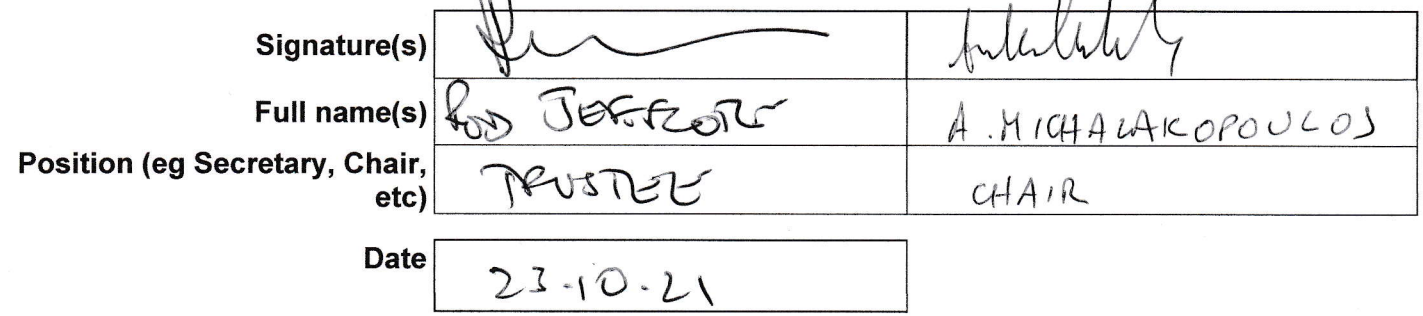 Signature(s)
Full name(s) ROD A. MICHALAKOPOULOS
Position (eg Secretary, Chair, etc) TRUSTEE CHAIR
Date 23.10.21